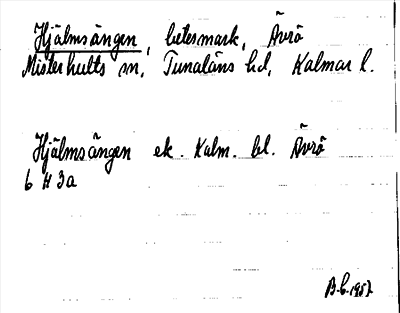 Hjälmsängen, betesmark, Ävrö
Misterhults sn, Tunaläns hd, Kalmar l.
Hjälmsängen ek. Kalm. bl. Ävrö
6 H 3a
B.L. 1957